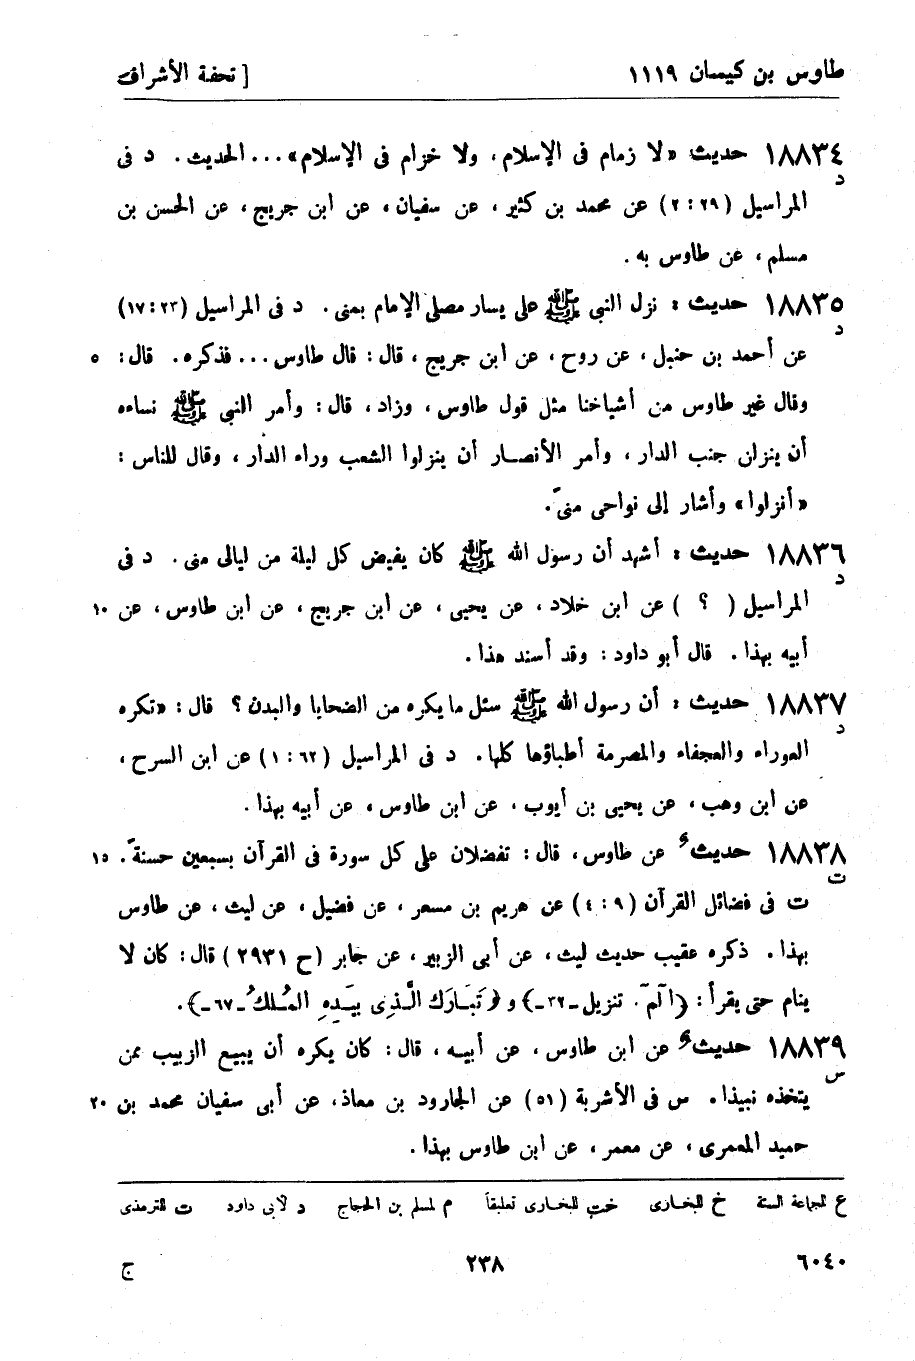 طاوس بن كيسان ١١١٩ [ تحفة الأشراف
١٨٨٣٤ حديث: «لا زمام فى الإسلام، ولا خزام فى الإسلام»... الحديث. د فى
د
المراسيل (٢٩: ٢) عن محمد بن كثير، عن سفيان، عن ابن جريج، عن الحسن بن
مسلم، عن طاوس به.
١٨٨٣٥ حديث: نزل النبى ﷺ على يسار مصلى الإمام بمنى. د فى المراسيل (٢٣: ١٧)
د
عن أحمد بن حنبل، عن روح، عن ابن جريج، قال: قال طاوس... فذكره. قال: ٥
وقال غير طاوس من أشياخنا مثل قول طاوس، وزاد، قال: وأمر النبى ﷺ نساءه
أن ينزلن جنب الدار، وأمر الأنصار أن ينزلوا الشعب وراء الدار، وقال للناس:
«أنزلوا» وأشار إلى نواحى منىً.
١٨٨٣٦ حديث: أشهد أن رسول الله ﷺ كان يفيض كل ليلة من ليالى منى. د فى
د
المراسيل ( ؟ ) عن ابن خلاد، عن يحيى، عن ابن جريج، عن ابن طاوس، عن ١٠
أبيه بهذا. قال أبو داود: وقد أسند هذا.
١٨٨٣٧ حديث: أن رسول الله ﷺ سئل ما يكره من الضحايا والبدن؟ قال: «تكره
د
العوراء والعجفاء والمصرمة أطباؤها كلها. د فى المراسيل (٦٢: ١) عن ابن السرح،
عن ابن وهب، عن يحيى بن أيوب، عن ابن طاوس، عن أبيه بهذا.
١٨٨٣٨ حديثُ عن طاوس، قال: تفضلان على كل سورة فى القرآن بسبعين حسنةً. ١٥
ت
ت فى فضائل القرآن (٩: ٤) عن هريم بن مسعر، عن فضيل، عن ليث، عن طاوس
بهذا. ذكره عقيب حديث ليث، عن أبى الزبير، عن جابر (ح ٢٩٣١) قال: كان لا
ينام حتى يقرأ: {آلمٓ. تنزيل ـ٣٢ـ} و{تَبَارَكَ الَّذِى بِيَدِهِ المُلكُ ـ٦٧ـ}.
١٨٨٣٩ حديثُ عن ابن طاوس، عن أبيه، قال: كان يكره أن يبيع الزبيب ممن
س
يتخذه نبيذا. س فى الأشربة (٥١) عن الجارود بن معاذ، عن أبى سفيان محمد بن ٢٠
حميد المعمرى، عن معمر، عن ابن طاوس بهذا.
ع للجماعة الستة خ للبخارى خت للبخارى تعليقاً م لمسلم بن الحجاج د لأبى داود ت للترمذى
٦٠٤٠ ٢٣٨ ج